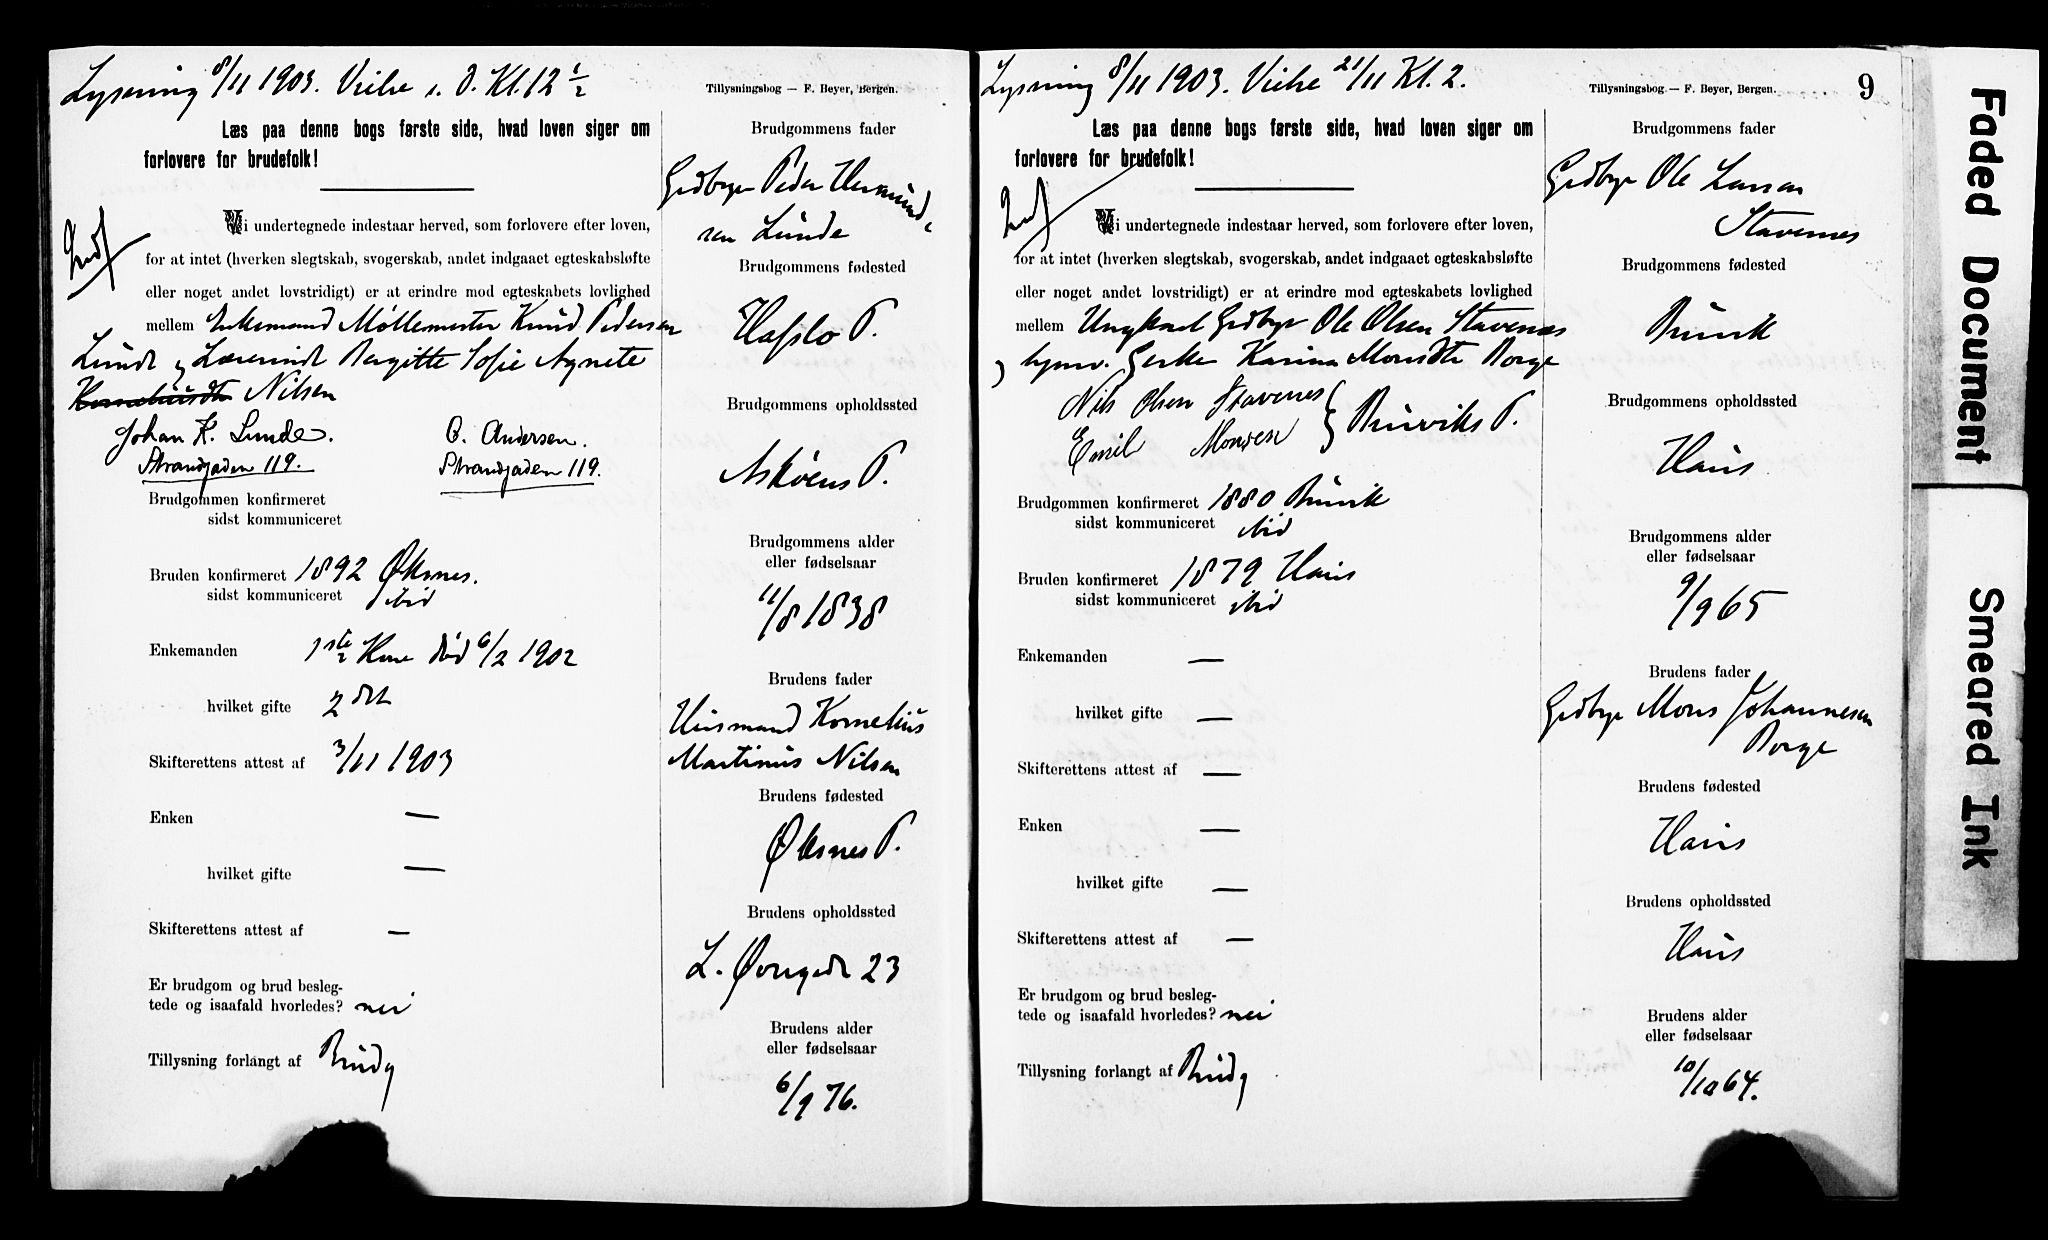 Lysning 8/11 1903. Vielse s. D. Kl. 12 1/2
Tillysningsbog — F. Beyer, Bergen.
Læs paa denne bogs første side, hvad loven siger om
forlovere for brudefolk!
Indf
Vi undertegnede indestaar herved, som forlovere efter loven,
for at intet (hverken slegtskab, svogerskab, andet indgaaet egteskabsløfte
eller noget andet lovstridigt) er at erindre mod egteskabets lovlighed
mellem Enkemand Møllemester Knud Pedersen
Lunde og Lærerinde Bergitte Sofie Agnete
Nilsen
Johan K. Lunde. O. Andersen.
Strandgaden 119. Strandgaden 119.
Brudgommen konfirmeret
sidst kommuniceret
Bruden konfirmeret 1892 Øksnes.
sidst kommuniceret ibid
Enkemanden 1ste Kone død 6/2 1902
hvilket gifte 2det
Skifterettens attest af 3/11 1903
Enken —
hvilket gifte —
Skifterettens attest af —
Er brudgom og brud besleg-
tede og isaafald hvorledes? nei
Tillysning forlangt af Brudg
Brudgommens fader
Grdbrgr Peder Hermund-
sen Lunde
Brudgommens fødested
Hafslo P.
Brudgommens opholdssted
Askøens P.
Brudgommens alder
eller fødselsaar
11/8 1838
Brudens fader
Husmand Kornelius
Martinus Nilsen
Brudens fødested
Øksnes P.
Brudens opholdssted
L. Øvregade 23
Brudens alder
eller fødselsaar
6/9 76.
Lysning 8/11 1903. Vielse 21/11 Kl. 2.
Tillysningsbog — F. Beyer, Bergen.
9
Læs paa denne bogs første side, hvad loven siger om
forlovere for brudefolk!
Indf
Vi undertegnede indestaar herved, som forlovere efter loven,
for at intet (hverken slegtskab, svogerskab, andet indgaaet egteskabsløfte
eller noget andet lovstridigt) er at erindre mod egteskabets lovlighed
mellem Ungkarl Grdbgr Ole Olsen Stavenes
Karina Monsdtr Borge
Nils Olsen Stavenes
Emil Monsen } Bruviks P.
Brudgommen konfirmeret 1880 Bruvik
sidst kommuniceret ibid
Bruden konfirmeret 1879 Haus
sidst kommuniceret ibid
Enkemanden —
hvilket gifte —
Skifterettens attest af —
Enken —
hvilket gifte —
Skifterettens attest af —
Er brudgom og brud besleg-
tede og isaafald hvorledes? nei
Tillysning forlangt af Brudg
Brudgommens fader
Grdbrgr Ole Larsen
Stavenes
Brudgommens fødested
Bruvik
Brudgommens opholdssted
Haus
Brudgommens alder
eller fødselsaar
9/9 65
Brudens fader
Grdbrgr Mons Johannesen
Borge
Brudens fødested
Haus
Brudens opholdssted
Haus
Brudens alder
eller fødselsaar
10/10 64.
Faded Document
Smeared Ink